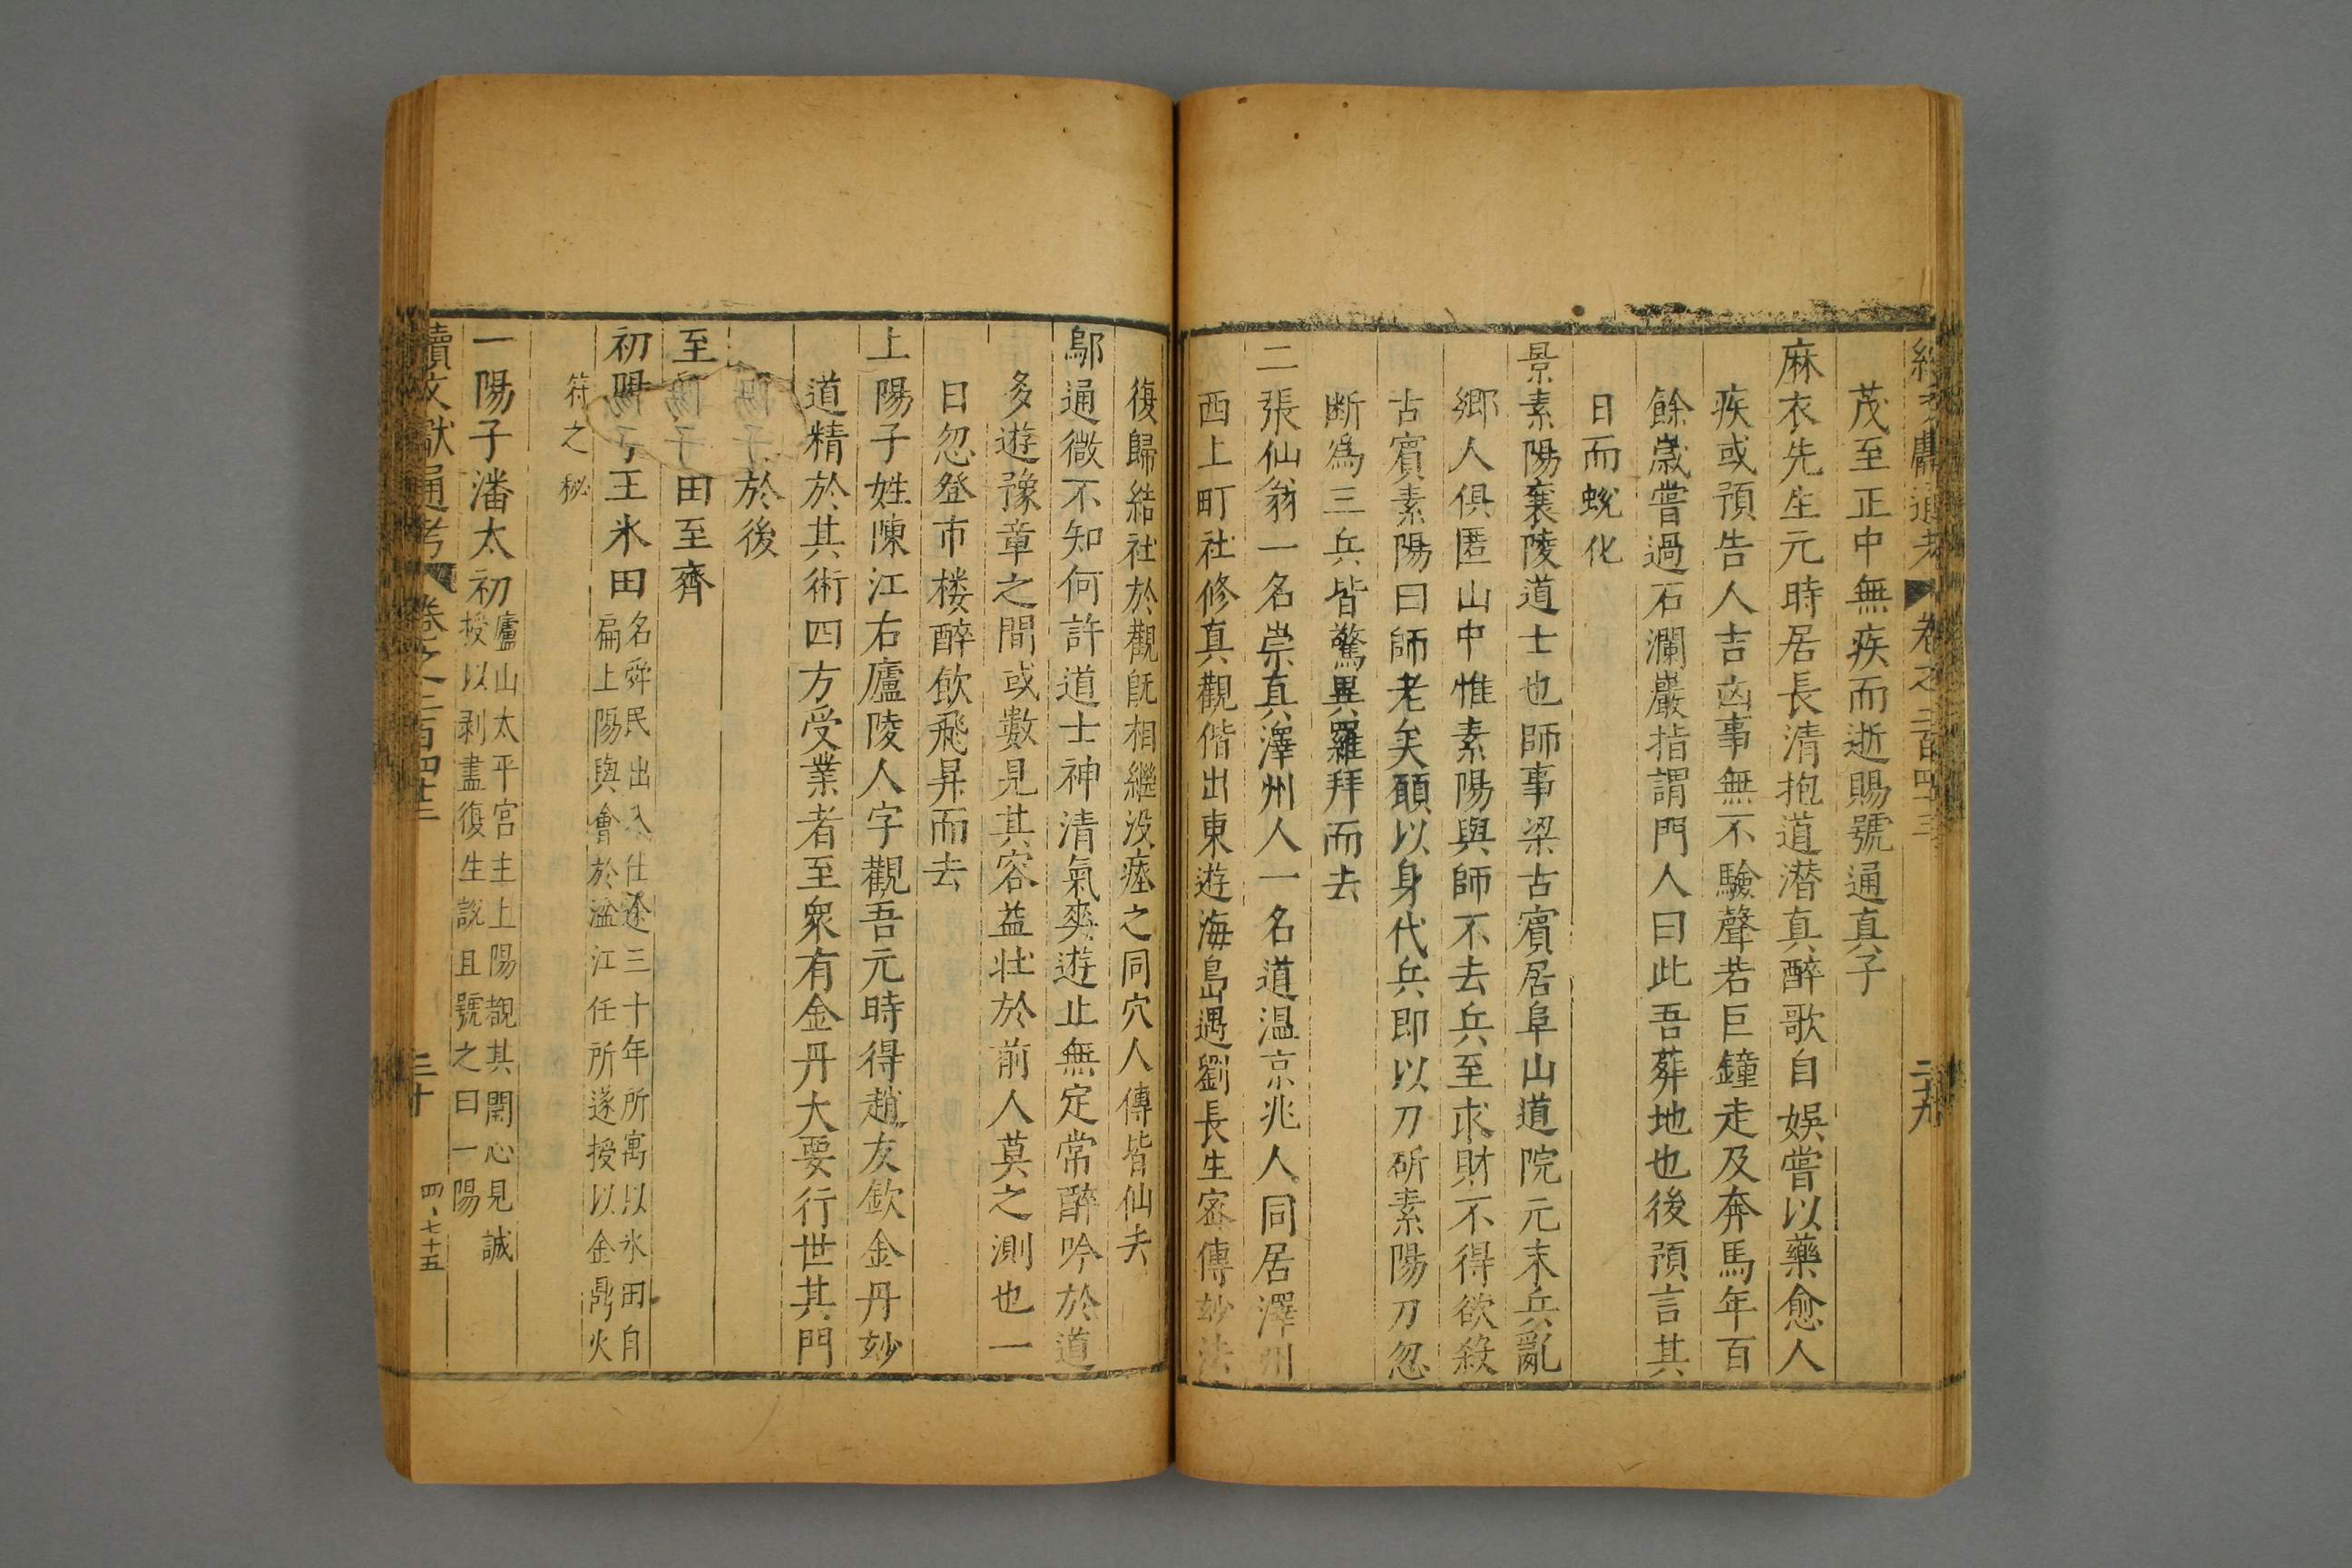 續文獻通考 卷之二百四十三 二十九
茂至正中無疾而逝賜號通真子
麻衣先生元時居長清抱道潜真醉歌自娛嘗以藥愈人
疾或預告人吉凶事無不驗聲若巨鐘走及奔馬年百
餘嵗嘗過石瀾巖指謂門人曰此吾葬地也後預言其
日而蛻化
景素陽襄陵道士也師事梁古賓居阜山道院元末兵亂
鄉人俱匿山中惟素陽與師不去兵至求財不得欲殺
古賓素陽曰師老矣願以身代兵即以刀斫素陽刀忽
断為三兵皆驚異羅拜而去
二張仙翁一名崇真澤州人一名道温京兆人同居澤州
西上町社修真觀偕出東遊海島遇劉長生密傳玅法
復歸結社於觀旣相繼沒瘞之同穴人傳皆仙去
鄔通微不知何許道士神清氣爽遊止無定常醉吟於道
多遊豫章之間或數見其容益壯於前人莫之測也一
日忽登市楼醉飲飛昇而去
上陽子姓陳江右廬陵人字觀吾元時得趙友欽金丹玅
道精於其術四方受業者至衆有金丹大要行世其門
於後
至陽子田至齊
初陽子王氷田名舜民出入仕途三十年所寓以氷田自
扁上陽與會於湓江任所遂授以金鼎火
符之秘
一陽子潘太初廬山太平宮主上陽覩其開心見誠
授以剥盡復生説且號之曰一陽
續文獻通考 卷之二百四十三 三十 四、七十五